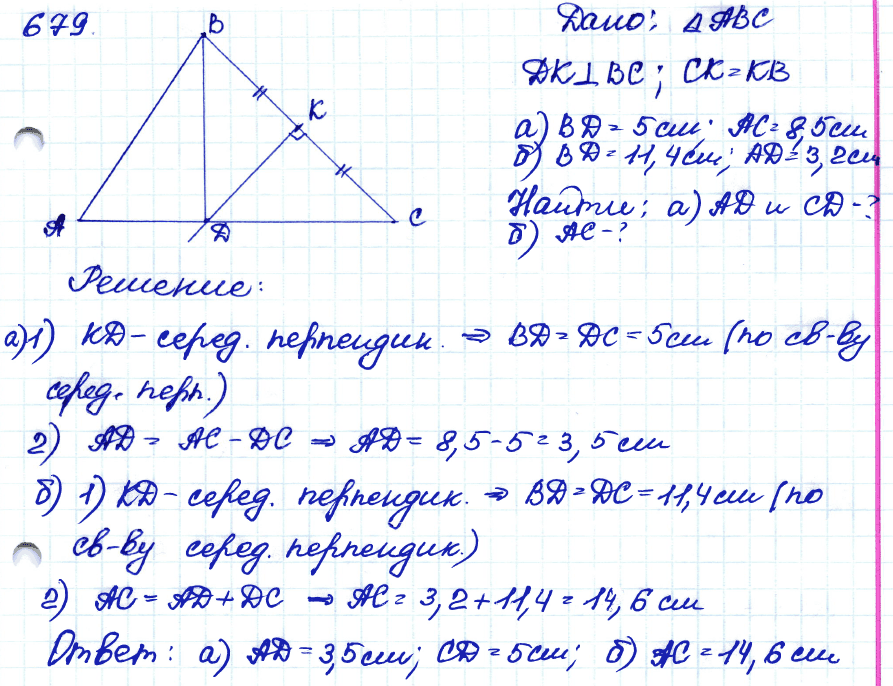 679.
B
K
A
D
C
Дано: △ABC
DK⊥BC; CK=KB
а) BD=5см; AC=8,5см
б) BD=11,4см; AD=3,2см
Найти: а) AD и CD-?
б) AC-?
Решение:
а) 1) KD – серед. перпендик. ⇒ BD=DC=5см (по св-ву
серед. перп.)
2) AD = AC - DC ⇒ AD = 8,5-5=3,5см
б) 1) KD – серед. перпендик. ⇒ BD=DC=11,4см (по
св-ву серед. перпендик.)
2) AC = AD + DC ⇒ AC = 3,2+11,4=14,6 см
Ответ: а) AD=3,5см; CD=5см; б) AC=14,6 см